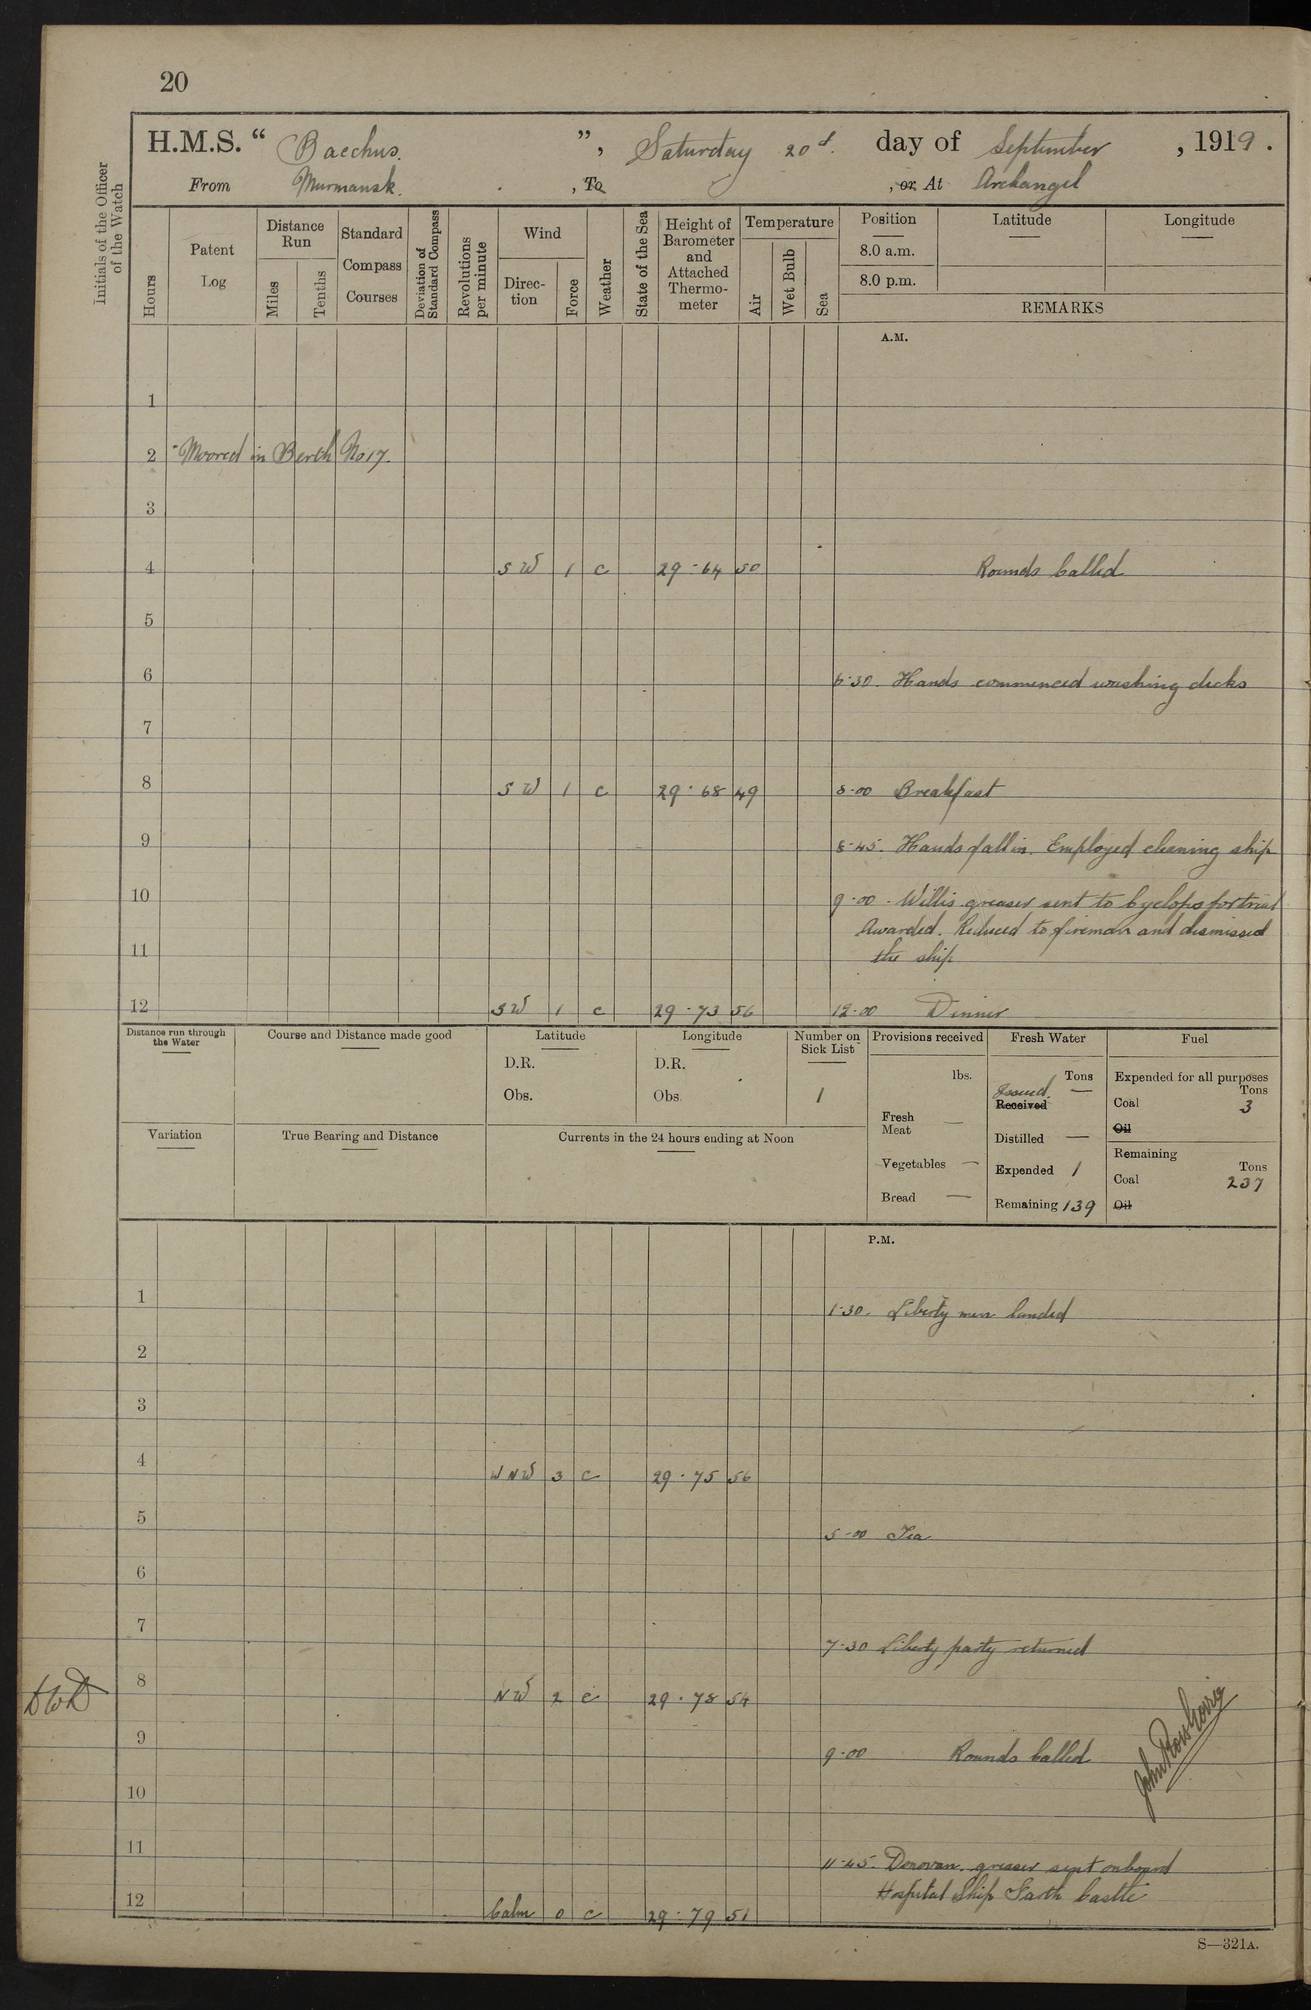 20
H.M.S. “ Bacchus. ”, Saturday 20th day of September, 1919.
From Murmansk. , To , or At Archangel
Initials of the Officer of the Watch
Hours
Patent Log
Distance Run
Miles
Tenths
Standard Compass Courses
Deviation of Standard Compass
Revolutions per minute
Wind
Direction
Force
Weather
State of the Sea
Height of Barometer and Attached Thermometer
Temperature
Air
Wet Bulb
Sea
Position Latitude Longitude
8.0 a.m.
8.0 p.m.
REMARKS
A.M.
1
2 Moored in Berth No 17.
3
4 SW 1 c 29·64 50 Rounds Called
5
6 6·30. Hands commenced washing decks
7
8 SW 1 c 29·68 49 8·00 Breakfast
9 8·45. Hands fall in. Employed cleaning ship
10 9·00. Willis greaser sent to Cyclops for trial
Awarded. Reduced to fireman and dismissed
11 the ship
12 SW 1 c 29·73 56 12·00 Dinner
Distance run through the Water
Course and Distance made good
Latitude
D.R.
Obs.
Longitude
D.R.
Obs.
Number on Sick List
1
Provisions received
lbs.
Fresh Meat —
Vegetables —
Bread —
Fresh Water
Tons
Issued. —
Received
Distilled —
Expended 1
Remaining 139
Fuel
Expended for all purposes
Tons
Coal 3
Oil
Remaining
Tons
Coal 237
Oil
Variation
True Bearing and Distance
Currents in the 24 hours ending at Noon
P.M.
1 1·30. Liberty men landed
2
3
4 WNW 3 c 29·75 56
5 5·00 Tea
6
7 7·30 Liberty party returned
8 NW 2 c 29·78 54
9 9·00 Rounds Called
10
11 11·45. Donovan. greaser sent onboard
Hospital Ship Garth Castle
12 Calm 0 c 29·79 51
S—321A.